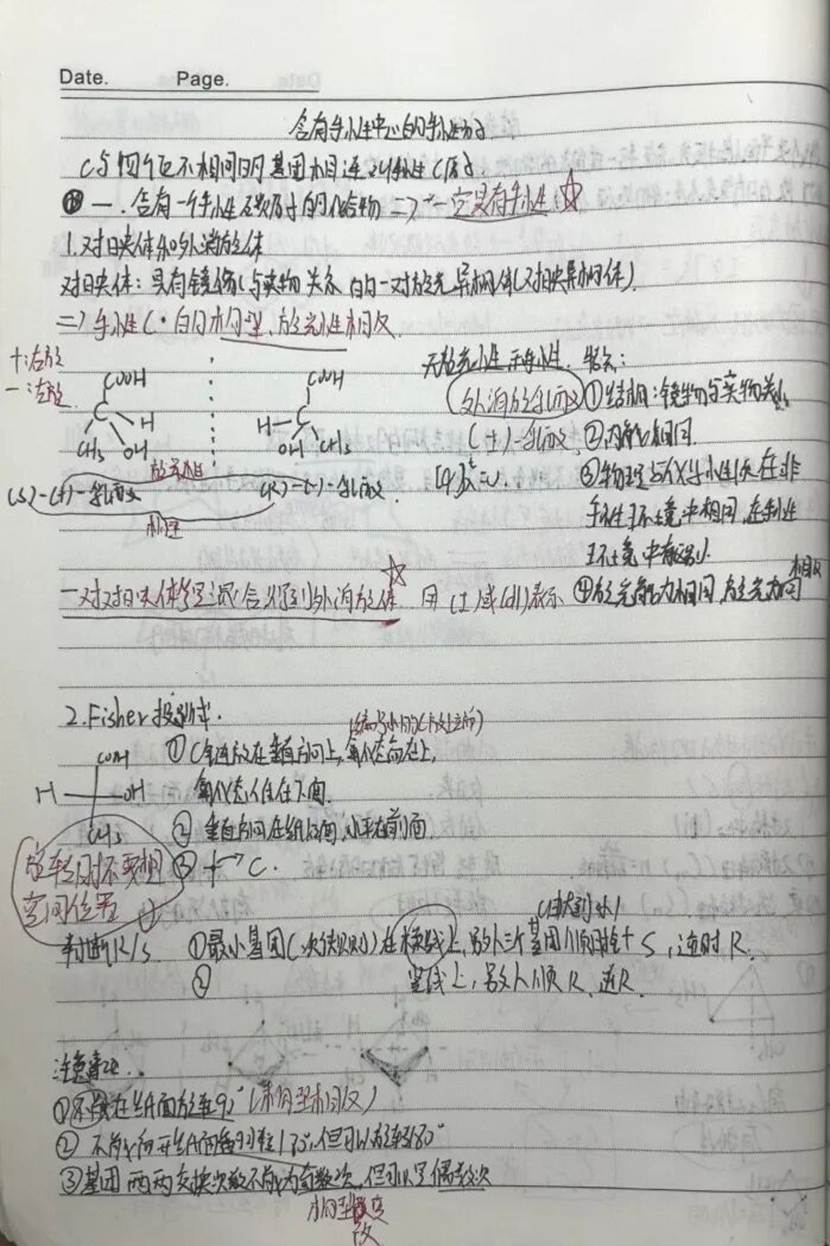 Date. Page.
含有手性中心的手性分子
C与四个互不相同的基团相连 叫手性C原子.
一. 含有一个手性碳原子的化合物 => 一定具有手性 ☆
1.对映体和外消旋体
对映体: 具有镜像与实物关系的一对旋光异构体(对映异构体).
=> 手性C·的构型、旋光性相反
+:右旋
-:左旋
COOH COOH
C H H C
CH3 OH OH CH3
旋光性
(S)-(+)-乳酸 (R)-(-)-乳酸
构型
无旋光性, 手性. 特点:
外消旋乳酸 ①结构:镜物与实物关系
(±)-乳酸 ②内能相同.
③物理与化学性质在非
手性环境中相同,在手性
环境中有区别.
一对对映体等量混合得到外消旋体 ☆ 用(±)或(dl)表示 ④旋光能力相同,旋光方向相反
2.Fisher投影式.
(编号小的C放上面)
COOH ①C链放在垂直方向上,氧化态高在上,
H OH 氧化态低在下面.
CH3 ②垂直方向在纸后面,水平在前面
③ + → C.
旋转时不要想
空间位置
(由大到小)
判断R/S. ①最小基团(次序规则)在横线上,另外三个基团顺时针 S,逆时 R.
② 竖线上,另外顺R、逆
注意事项..
①不能在纸面旋转90°(构型相反)
②不能离开纸面翻转180°,但可以旋转180°
③基团两两交换次数不能为奇数次,但可以是偶数次
构型改变